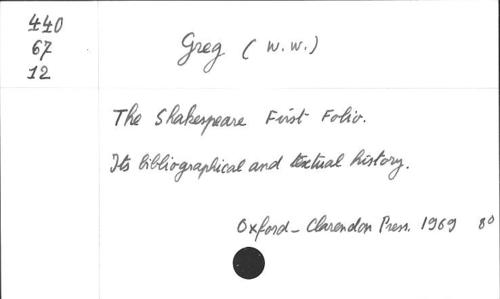 440
67
12
Greg (W.W.)
The Shakespeare First Folio.
Its bibliographical and textual history.
Oxford - Clarendon Press. 1969 8°